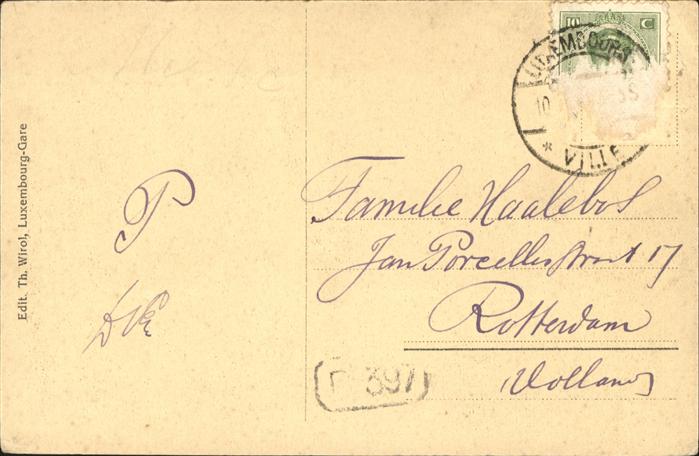 10 C
LUXEMBOURG
10
VILLE
Familie Haalebos
Jan Porcellisstraat 17
Rotterdam
Holland
P
397
Edit. Th. Wirol, Luxembourg-Gare